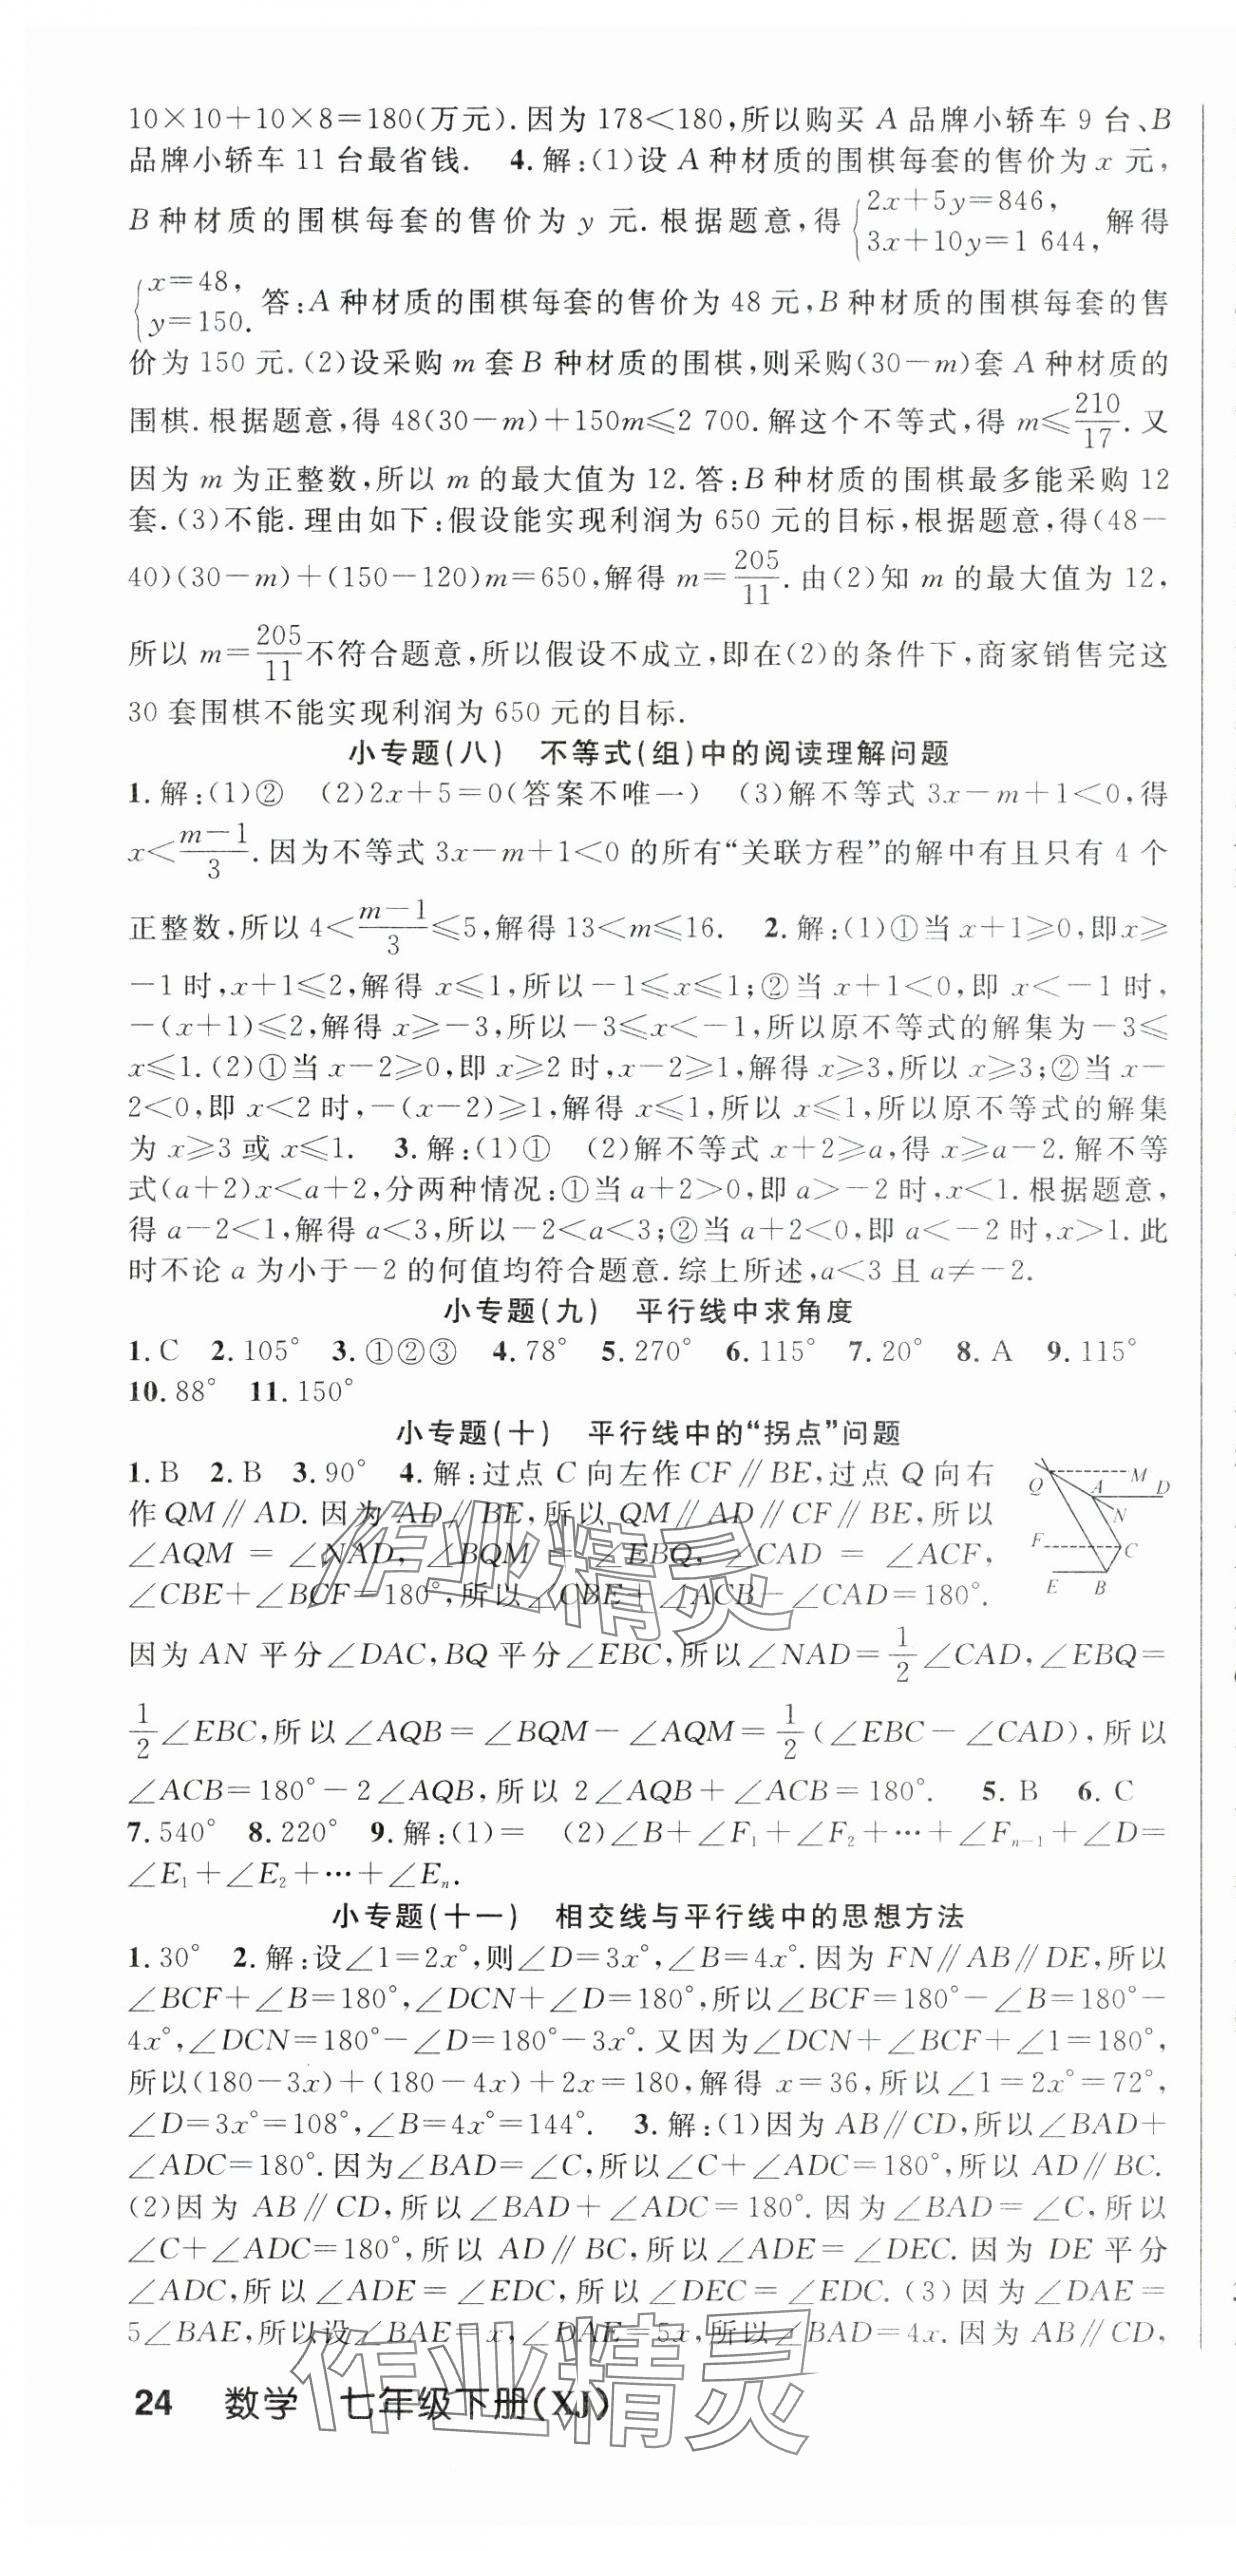 10×10+10×8=180(万元).因为178<180,所以购买A品牌小轿车9台、B
品牌小轿车11台最省钱. 4.解:(1)设A种材质的围棋每套的售价为x元,
B种材质的围棋每套的售价为y元.根据题意,得{2x+5y=846, 3x+10y=1 644,解得
{x=48, y=150. 答:A种材质的围棋每套的售价为48元,B种材质的围棋每套的售
价为150元.(2)设采购m套B种材质的围棋,则采购(30-m)套A种材质的
围棋.根据题意,得48(30-m)+150m≤2 700.解这个不等式,得m≤210/17.又
因为m为正整数,所以m的最大值为12.答:B种材质的围棋最多能采购12
套.(3)不能.理由如下:假设能实现利润为650元的目标,根据题意,得(48-
40)(30-m)+(150-120)m=650,解得m=205/11.由(2)知m的最大值为12,
所以m=205/11不符合题意,所以假设不成立,即在(2)的条件下,商家销售完这
30套围棋不能实现利润为650元的目标.
小专题(八) 不等式(组)中的阅读理解问题
1.解:(1)② (2)2x+5=0(答案不唯一) (3)解不等式3x-m+1<0,得
x<(m-1)/3.因为不等式3x-m+1<0的所有“关联方程”的解中有且只有4个
正整数,所以4<(m-1)/3≤5,解得13<m≤16. 2.解:(1)①当x+1≥0,即x≥
-1时,x+1≤2,解得x≤1,所以-1≤x≤1;②当x+1<0,即x<-1时,
-(x+1)≤2,解得x≥-3,所以-3≤x<-1,所以原不等式的解集为-3≤
x≤1.(2)①当x-2≥0,即x≥2时,x-2≥1,解得x≥3,所以x≥3;②当x-
2<0,即x<2时,-(x-2)≥1,解得x≤1,所以x≤1,所以原不等式的解集
为x≥3或x≤1. 3.解:(1)① (2)解不等式x+2≥a,得x≥a-2.解不等
式(a+2)x<a+2,分两种情况:①当a+2>0,即a>-2时,x<1.根据题意,
得a-2<1,解得a<3,所以-2<a<3;②当a+2<0,即a<-2时,x>1.此
时不论a为小于-2的何值均符合题意.综上所述,a<3且a≠-2.
小专题(九) 平行线中求角度
1.C 2.105° 3.①②③ 4.78° 5.270° 6.115° 7.20° 8.A 9.115°
10.88° 11.150°
小专题(十) 平行线中的“拐点”问题
1.B 2.B 3.90° 4.解:过点C向左作CF∥BE,过点Q向右
作QM∥AD.因为AD∥BE,所以QM∥AD∥CF∥BE,所以
∠AQM=∠NAD,∠BQM=∠EBQ,∠CAD=∠ACF,
∠CBE+∠BCF=180°,所以∠CBE+∠ACB-∠CAD=180°.
Q M A D N F C E B
因为AN平分∠DAC,BQ平分∠EBC,所以∠NAD=1/2∠CAD,∠EBQ=
1/2∠EBC,所以∠AQB=∠BQM-∠AQM=1/2(∠EBC-∠CAD),所以
∠ACB=180°-2∠AQB,所以2∠AQB+∠ACB=180°. 5.B 6.C
7.540° 8.220° 9.解:(1)= (2)∠B+∠F₁+∠F₂+…+∠Fₙ₋₁+∠D=
∠E₁+∠E₂+…+∠Eₙ.
小专题(十一) 相交线与平行线中的思想方法
1.30° 2.解:设∠1=2x°,则∠D=3x°,∠B=4x°.因为FN∥AB∥DE,所以
∠BCF+∠B=180°,∠DCN+∠D=180°,所以∠BCF=180°-∠B=180°-
4x°,∠DCN=180°-∠D=180°-3x°.又因为∠DCN+∠BCF+∠1=180°,
所以(180-3x)+(180-4x)+2x=180,解得x=36,所以∠1=2x°=72°,
∠D=3x°=108°,∠B=4x°=144°. 3.解:(1)因为AB∥CD,所以∠BAD+
∠ADC=180°.因为∠BAD=∠C,所以∠C+∠ADC=180°,所以AD∥BC.
(2)因为AB∥CD,所以∠BAD+∠ADC=180°.因为∠BAD=∠C,所以
∠C+∠ADC=180°,所以AD∥BC,所以∠ADE=∠DEC.因为DE平分
∠ADC,所以∠ADE=∠EDC,所以∠DEC=∠EDC.(3)因为∠DAE=
5∠BAE,所以设∠BAE=x,∠DAE=5x,所以∠BAD=4x.因为AB∥CD,
24 数学 七年级下册(XJ)
作业精灵
作业精灵